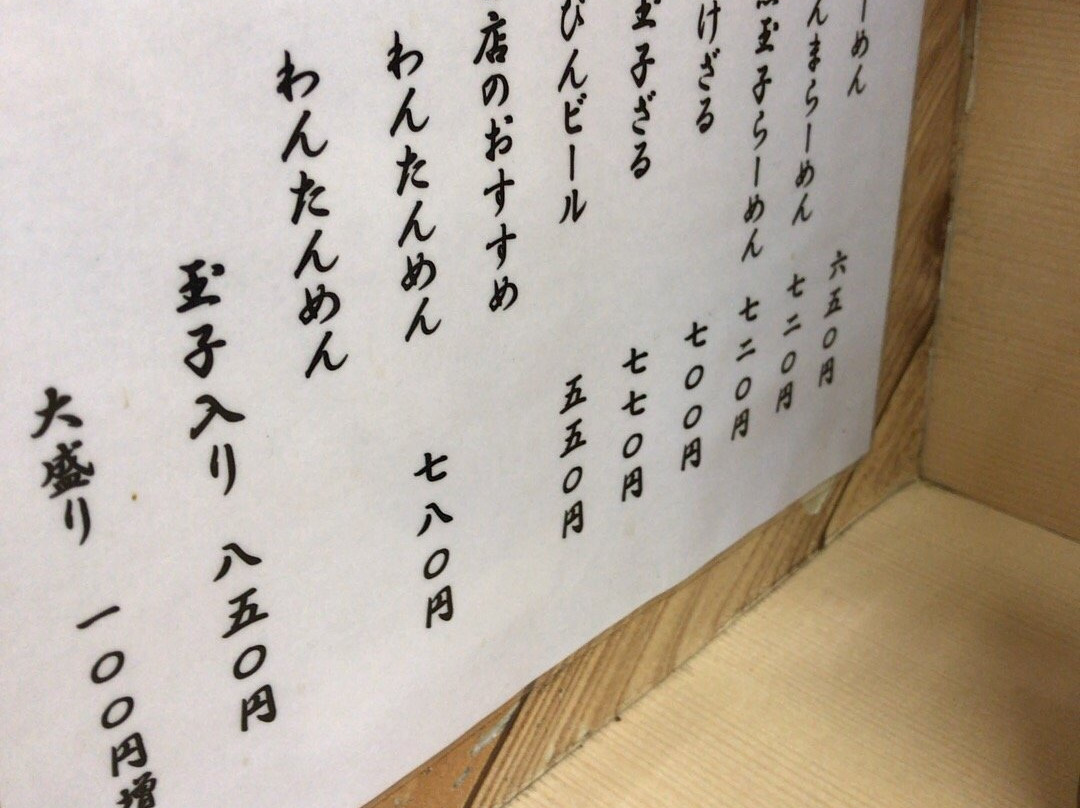 ーめん 六五〇円
んまらーめん 七二〇円
玉子らーめん 七二〇円
けざる 七〇〇円
玉子ざる 七七〇円
びんビール 五五〇円
店のおすすめ
わんたんめん 七八〇円
わんたんめん
玉子入り 八五〇円
大盛り 一〇〇円増